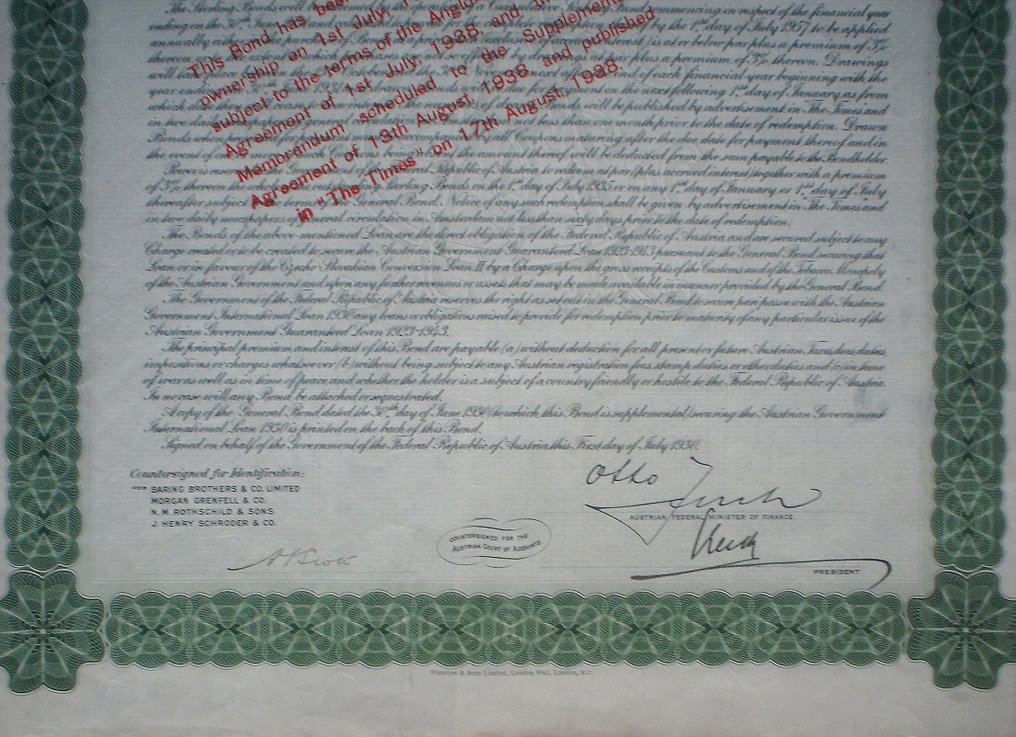 The Sterling Bonds will commencing in respect of the financial year
ending on the 30th June by the 1st day of July 1957 to be applied
annually either is at or below par plus a premium of 5%
thereon plus a premium of 5% thereon. Drawings
will of each financial year beginning with the
year on the next following 1st day of January as from
which will be published by advertisement in The Times and
in two daily less than one month prior to the date of redemption. Drawn
Bonds all Coupons maturing after the due date for payment thereof and in
the event of any the amount thereof will be deducted from the sum payable to the Bondholder.
Power is reserved Republic of Austria to redeem at par plus accrued interest together with a premium
of 5% thereon Sterling Bonds on the 1st day of July 1935 or on any 1st day of January or 1st day of July
thereafter subject General Bond. Notice of any such redemption shall be given by advertisement in The Times and
in two daily newspapers of general circulation in Austria not less than sixty days prior to the date of redemption.
This Bond has been
ownership on 1st July, 1
subject to the terms of the Anglo
Agreement of 1st July, 1938, and
Memorandum scheduled to the Supplement
Agreement of 13th August, 1938, and published
in "The Times" on 17th August, 1938.
The Bonds of the above-mentioned Loan are the direct obligation of the Federal Republic of Austria and are secured subject to any
Charge created or to be created to secure the Austrian Government Guaranteed Loan 1923-1943 pursuant to the General Bond securing that
Loan or in favour of the Czecho-Slovakian Conversion Loan II by a Charge upon the gross receipts of the Customs and of the Tobacco Monopoly
of the Austrian Government and upon any further revenues or assets that may be made available in manner provided by the General Bond.
The Government of the Federal Republic of Austria reserves the right as set out in the General Bond to secure pari passu with the Austrian
Government International Loan 1930 any loans or obligations raised to provide for redemption prior to maturity of any particular issue of the
Austrian Government Guaranteed Loan 1923-1943.
The principal premium and interest of this Bond are payable (a) without deduction for all present or future Austrian Taxes dues duties
impositions or charges whatsoever (b) without being subject to any Austrian registration fees stamp duties or other duties and (c) in time
of war as well as in time of peace and whether the holder is a subject of a country friendly or hostile to the Federal Republic of Austria.
In no case will any Bond be attached or sequestrated.
A copy of the General Bond dated the 30th day of June 1930 to which this Bond is supplemental securing the Austrian Government
International Loan 1930 is printed on the back of this Bond.
Signed on behalf of the Government of the Federal Republic of Austria this First day of July 1930.
Countersigned for Identification:
BARING BROTHERS & CO. LIMITED
MORGAN GRENFELL & CO.
N. M. ROTHSCHILD & SONS
J. HENRY SCHRODER & CO.
Otto Juch
AUSTRIAN FEDERAL MINISTER OF FINANCE
COUNTERSIGNED FOR THE
AUSTRIAN COURT OF ACCOUNTS
PRESIDENT
Waterlow & Sons Limited, London Wall, London, E.C.